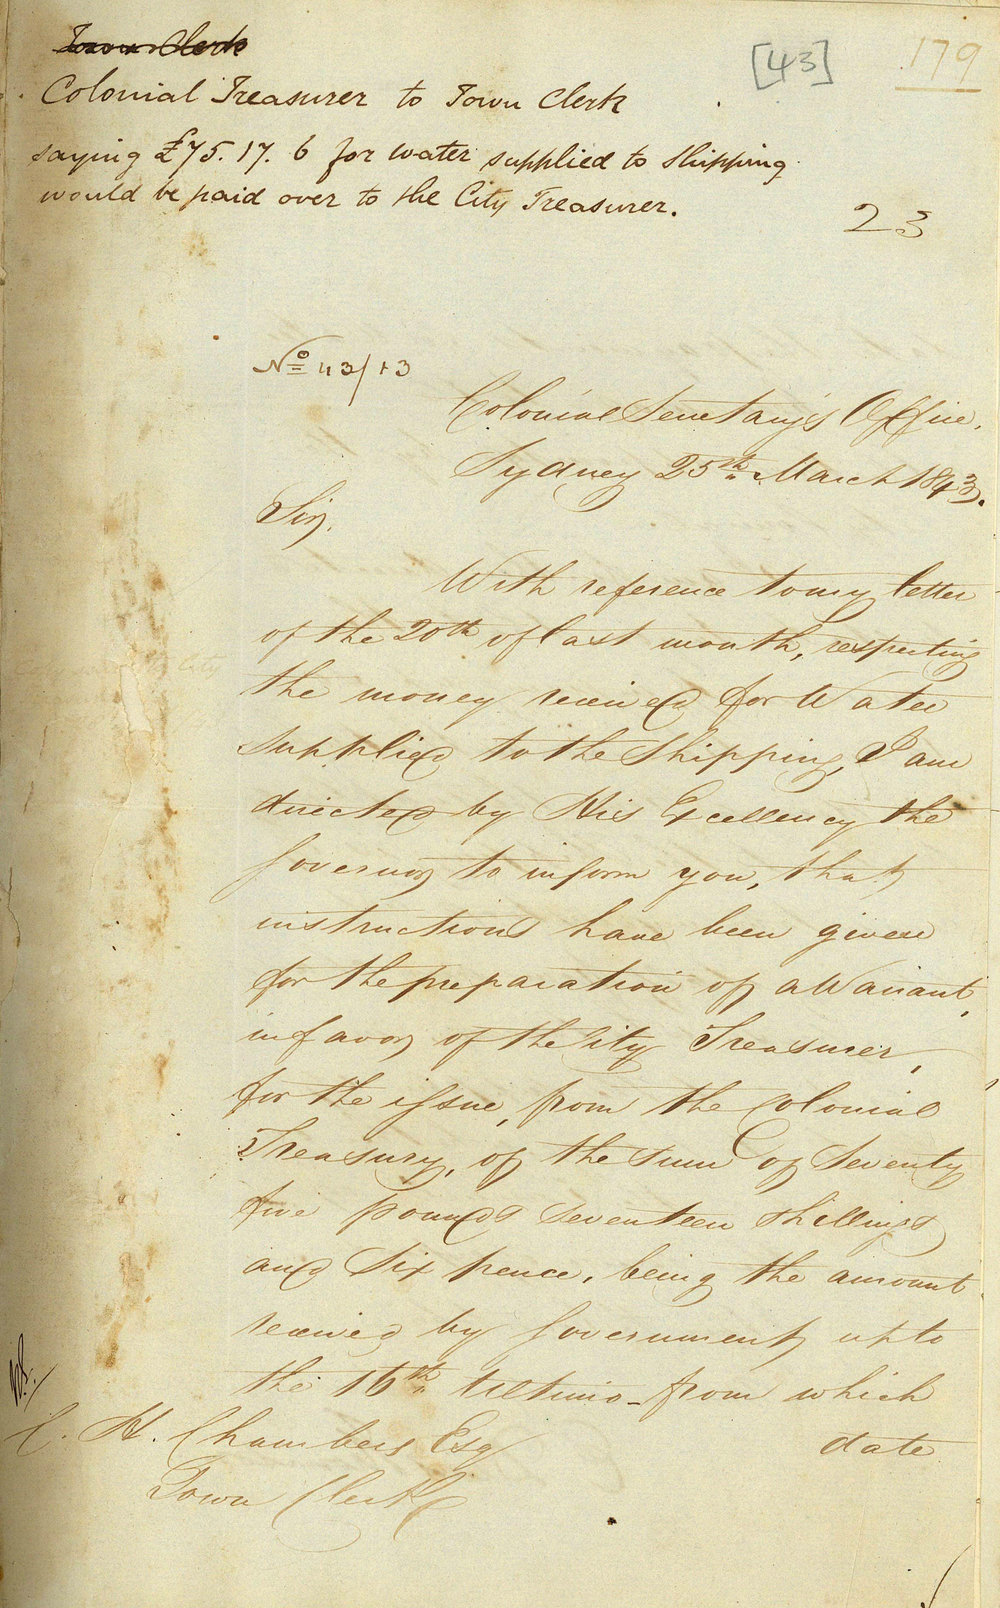 Town Clerk
[43]
179
Colonial Treasurer to Town Clerk
saying £75. 17. 6 for water supplied to Shipping
would be paid over to the City Treasurer.
23
No 43/13
Colonial Secretary's Office,
Sydney 25th March 1843.
Sir,
With reference to my letter
of the 20th of last month, respecting
the money received for Water
supplied to the Shipping, I am
directed by His Excellency the
Governor to inform you, that
instructions have been given
for the preparation of a Warrant,
in favor of the City Treasurer,
for the issue, from the Colonial
Treasury, of the sum of Seventy
five pounds seventeen shillings
and Six pence, being the amount
received by Government up to
the 16th Ultimo - from which
date
C. H. Chambers Esqr
Town Clerk